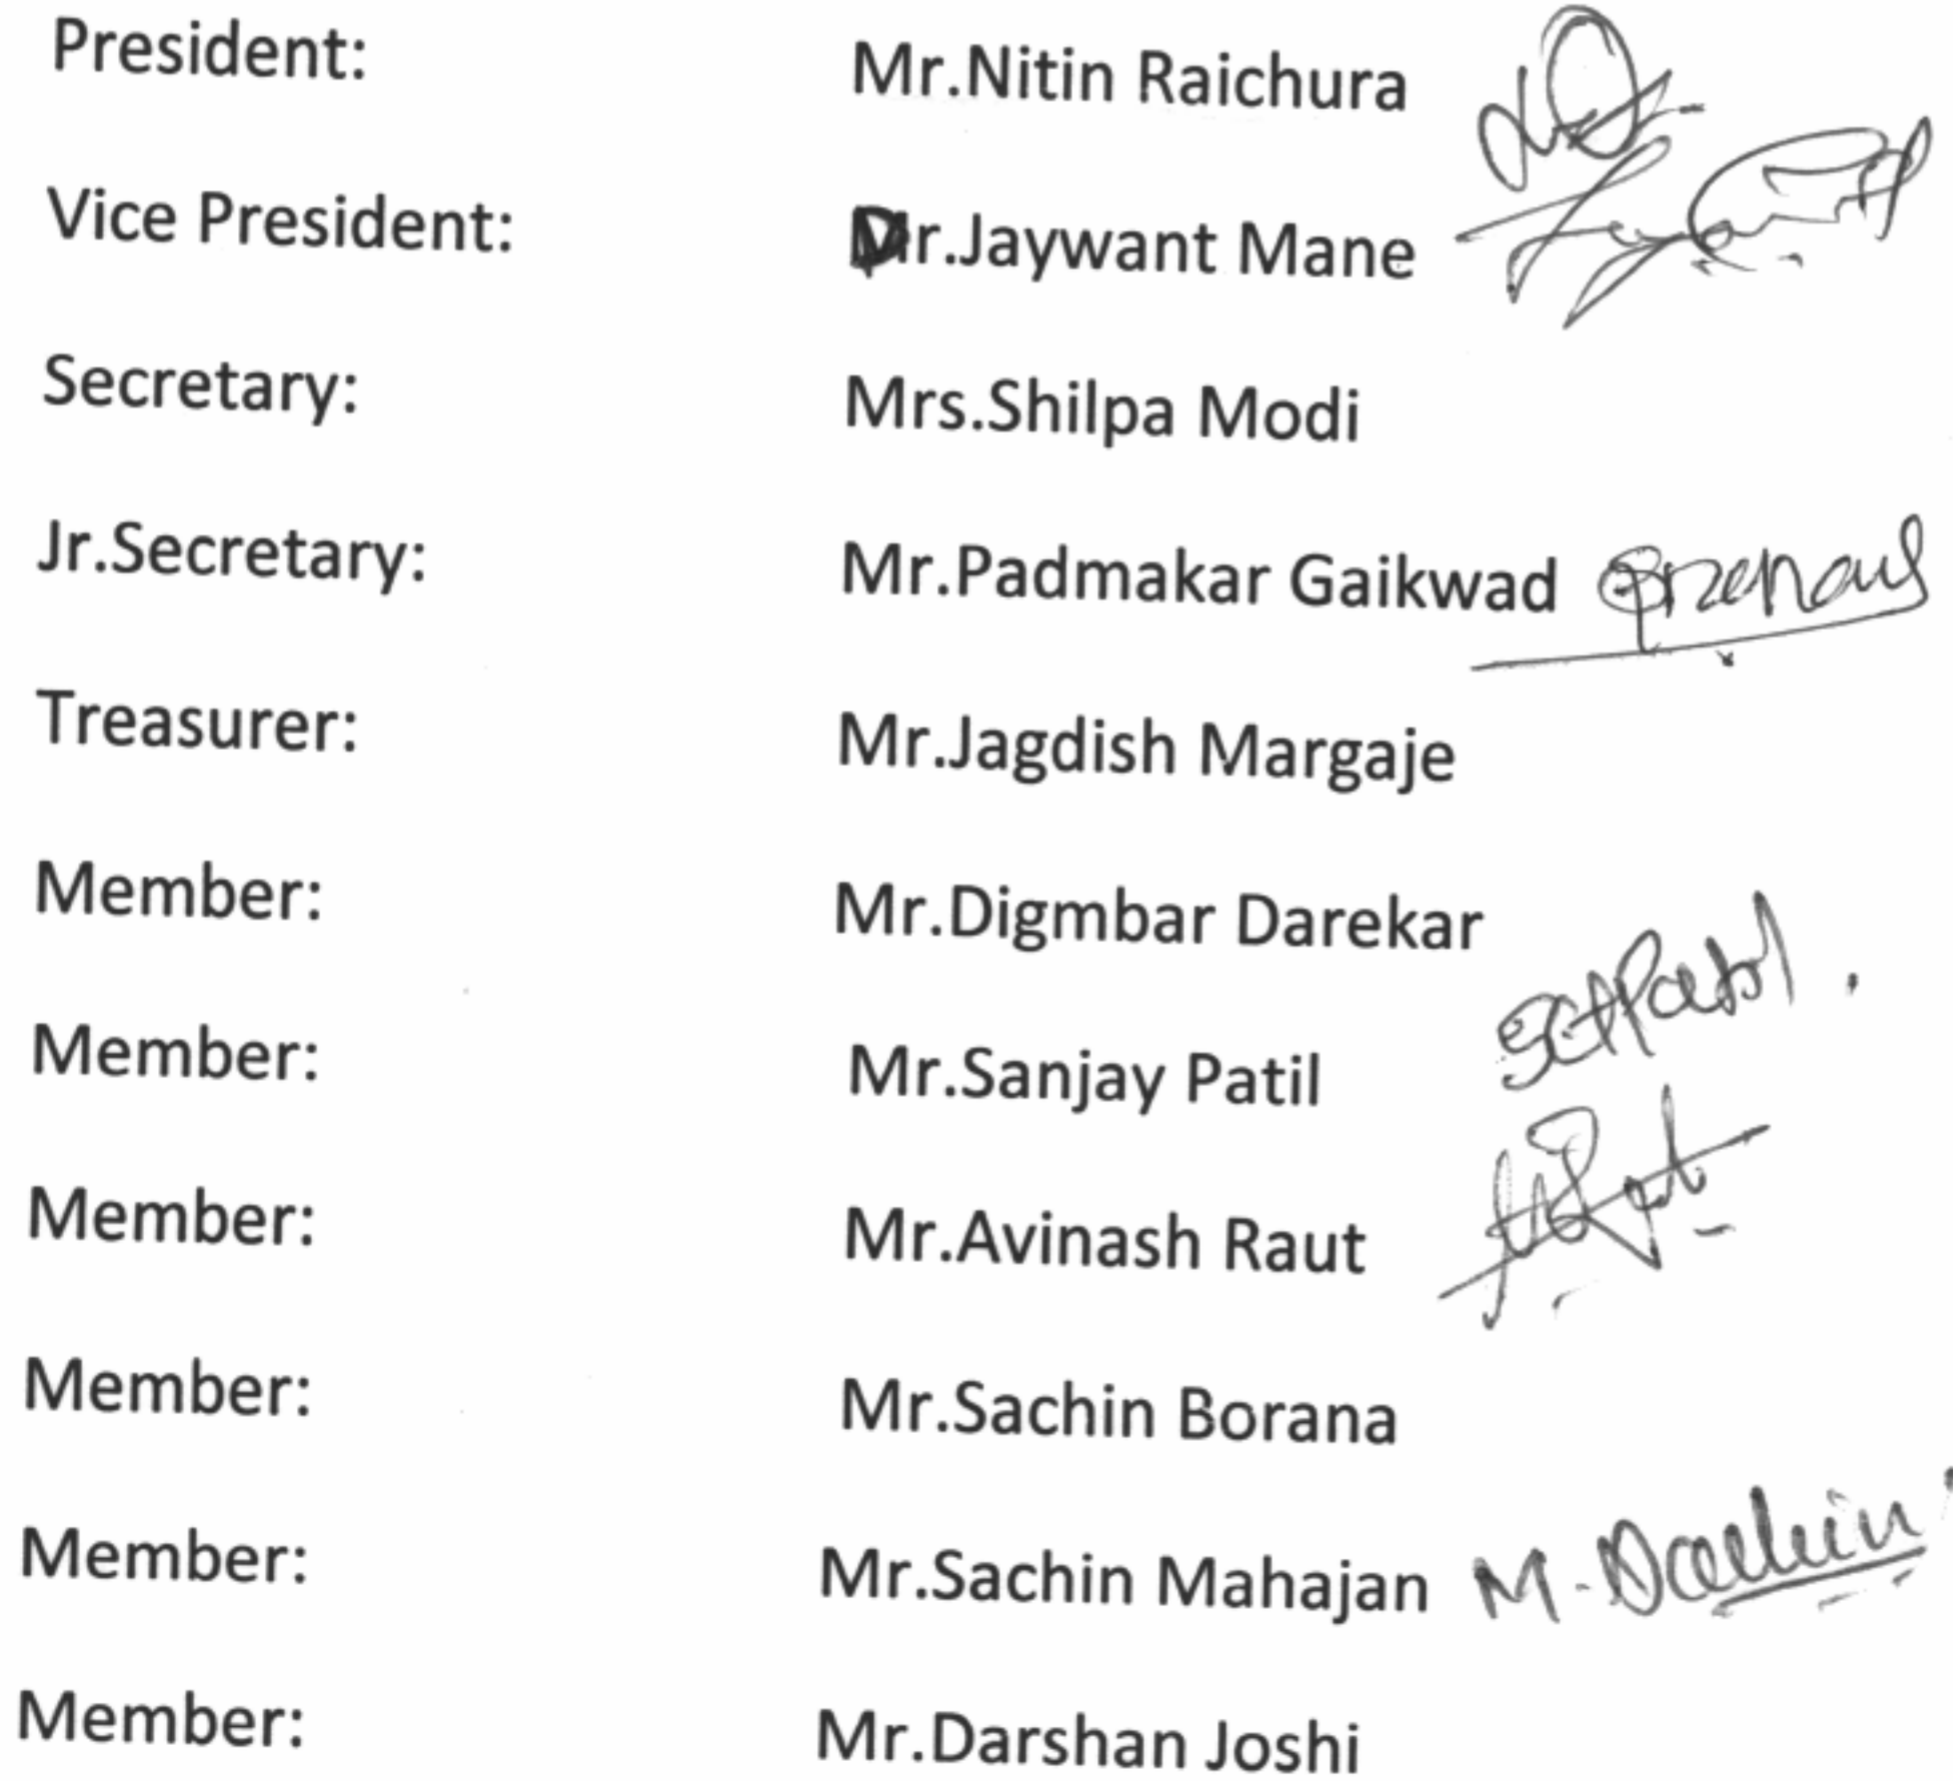 President: Mr.Nitin Raichura
Vice President: Dr.Jaywant Mane
Secretary: Mrs.Shilpa Modi
Jr.Secretary: Mr.Padmakar Gaikwad
Treasurer: Mr.Jagdish Margaje
Member: Mr.Digmbar Darekar
Member: Mr.Sanjay Patil
Member: Mr.Avinash Raut
Member: Mr.Sachin Borana
Member: Mr.Sachin Mahajan
Member: Mr.Darshan Joshi